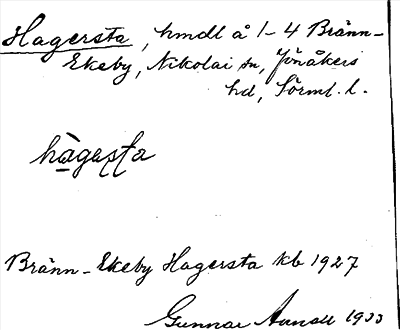 Hagersta, hmdl å 1-4 Bränn-
Ekeby, Nikolai sn, Jönåkers
hd, Sörml. l.
hàgasta
Bränn-Ekeby Hagersta kb 1927
Gunnar 1933